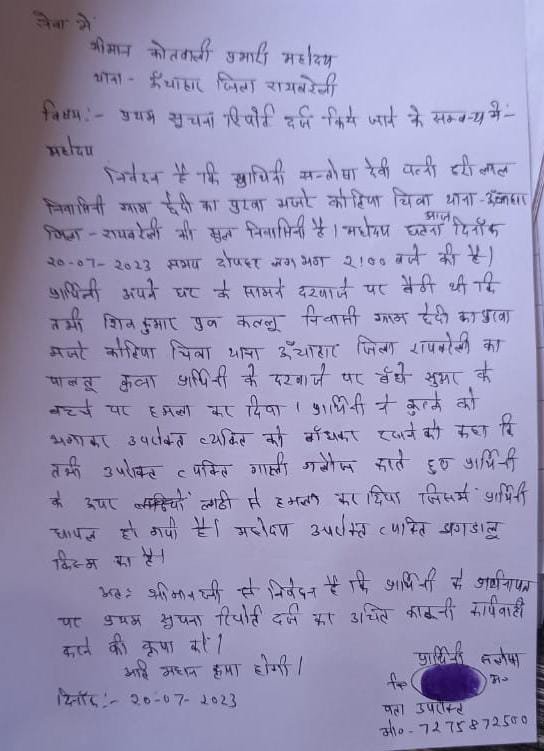 सेवा में
श्रीमान कोतवाली प्रभारी महोदय
थाना - ऊँचाहार जिला रायबरेली
विषय:- प्रथम सूचना रिपोर्ट दर्ज किये जाने के सम्बन्ध में:-
महोदय
निवेदन है कि प्रार्थिनी सन्तोषा देवी पत्नी हरी लाल
निवासिनी ग्राम छेदी का पुरवा मजरे कोटिया चित्रा थाना - ऊँचाहार
जिला - रायबरेली की मूल निवासिनी है। महोदय घटना आज दिनाँक
20-07-2023 समय दोपहर लगभग 2:00 बजे की है।
प्रार्थिनी अपने घर के सामने दरवाजे पर बैठी थी कि
तभी शिव कुमार पुत्र कल्लू निवासी ग्राम छेदी का पुरवा
मजरे कोटिया चित्रा थाना ऊँचाहार जिला रायबरेली का
पालतू कुत्ता प्रार्थिनी के दरवाजे पर बँधे सुअर के
बच्चे पर हमला कर दिया। प्रार्थिनी ने कुत्ते को
भगाकर उपरोक्त व्यक्ति को बाँधकर रखने को कहा कि
तभी उपरोक्त व्यक्ति गाली गलौज करते हुए प्रार्थिनी
के ऊपर लाठी से हमला कर दिया जिसमें प्रार्थिनी
घायल हो गयी है। महोदय उपरोक्त व्यक्ति झगडालू
किस्म का है।
अतः श्रीमान जी से निवेदन है कि प्रार्थिनी के प्रार्थनापत्र
पर प्रथम सूचना रिपोर्ट दर्ज कर उचित कानूनी कार्यवाही
करने की कृपा करें।
अति महान कृपा होगी।
दिनाँक:- 20-07-2023
प्रार्थिनी सन्तोषा
नि० अ०
पता उपरोक्त
मो०- 7275872500